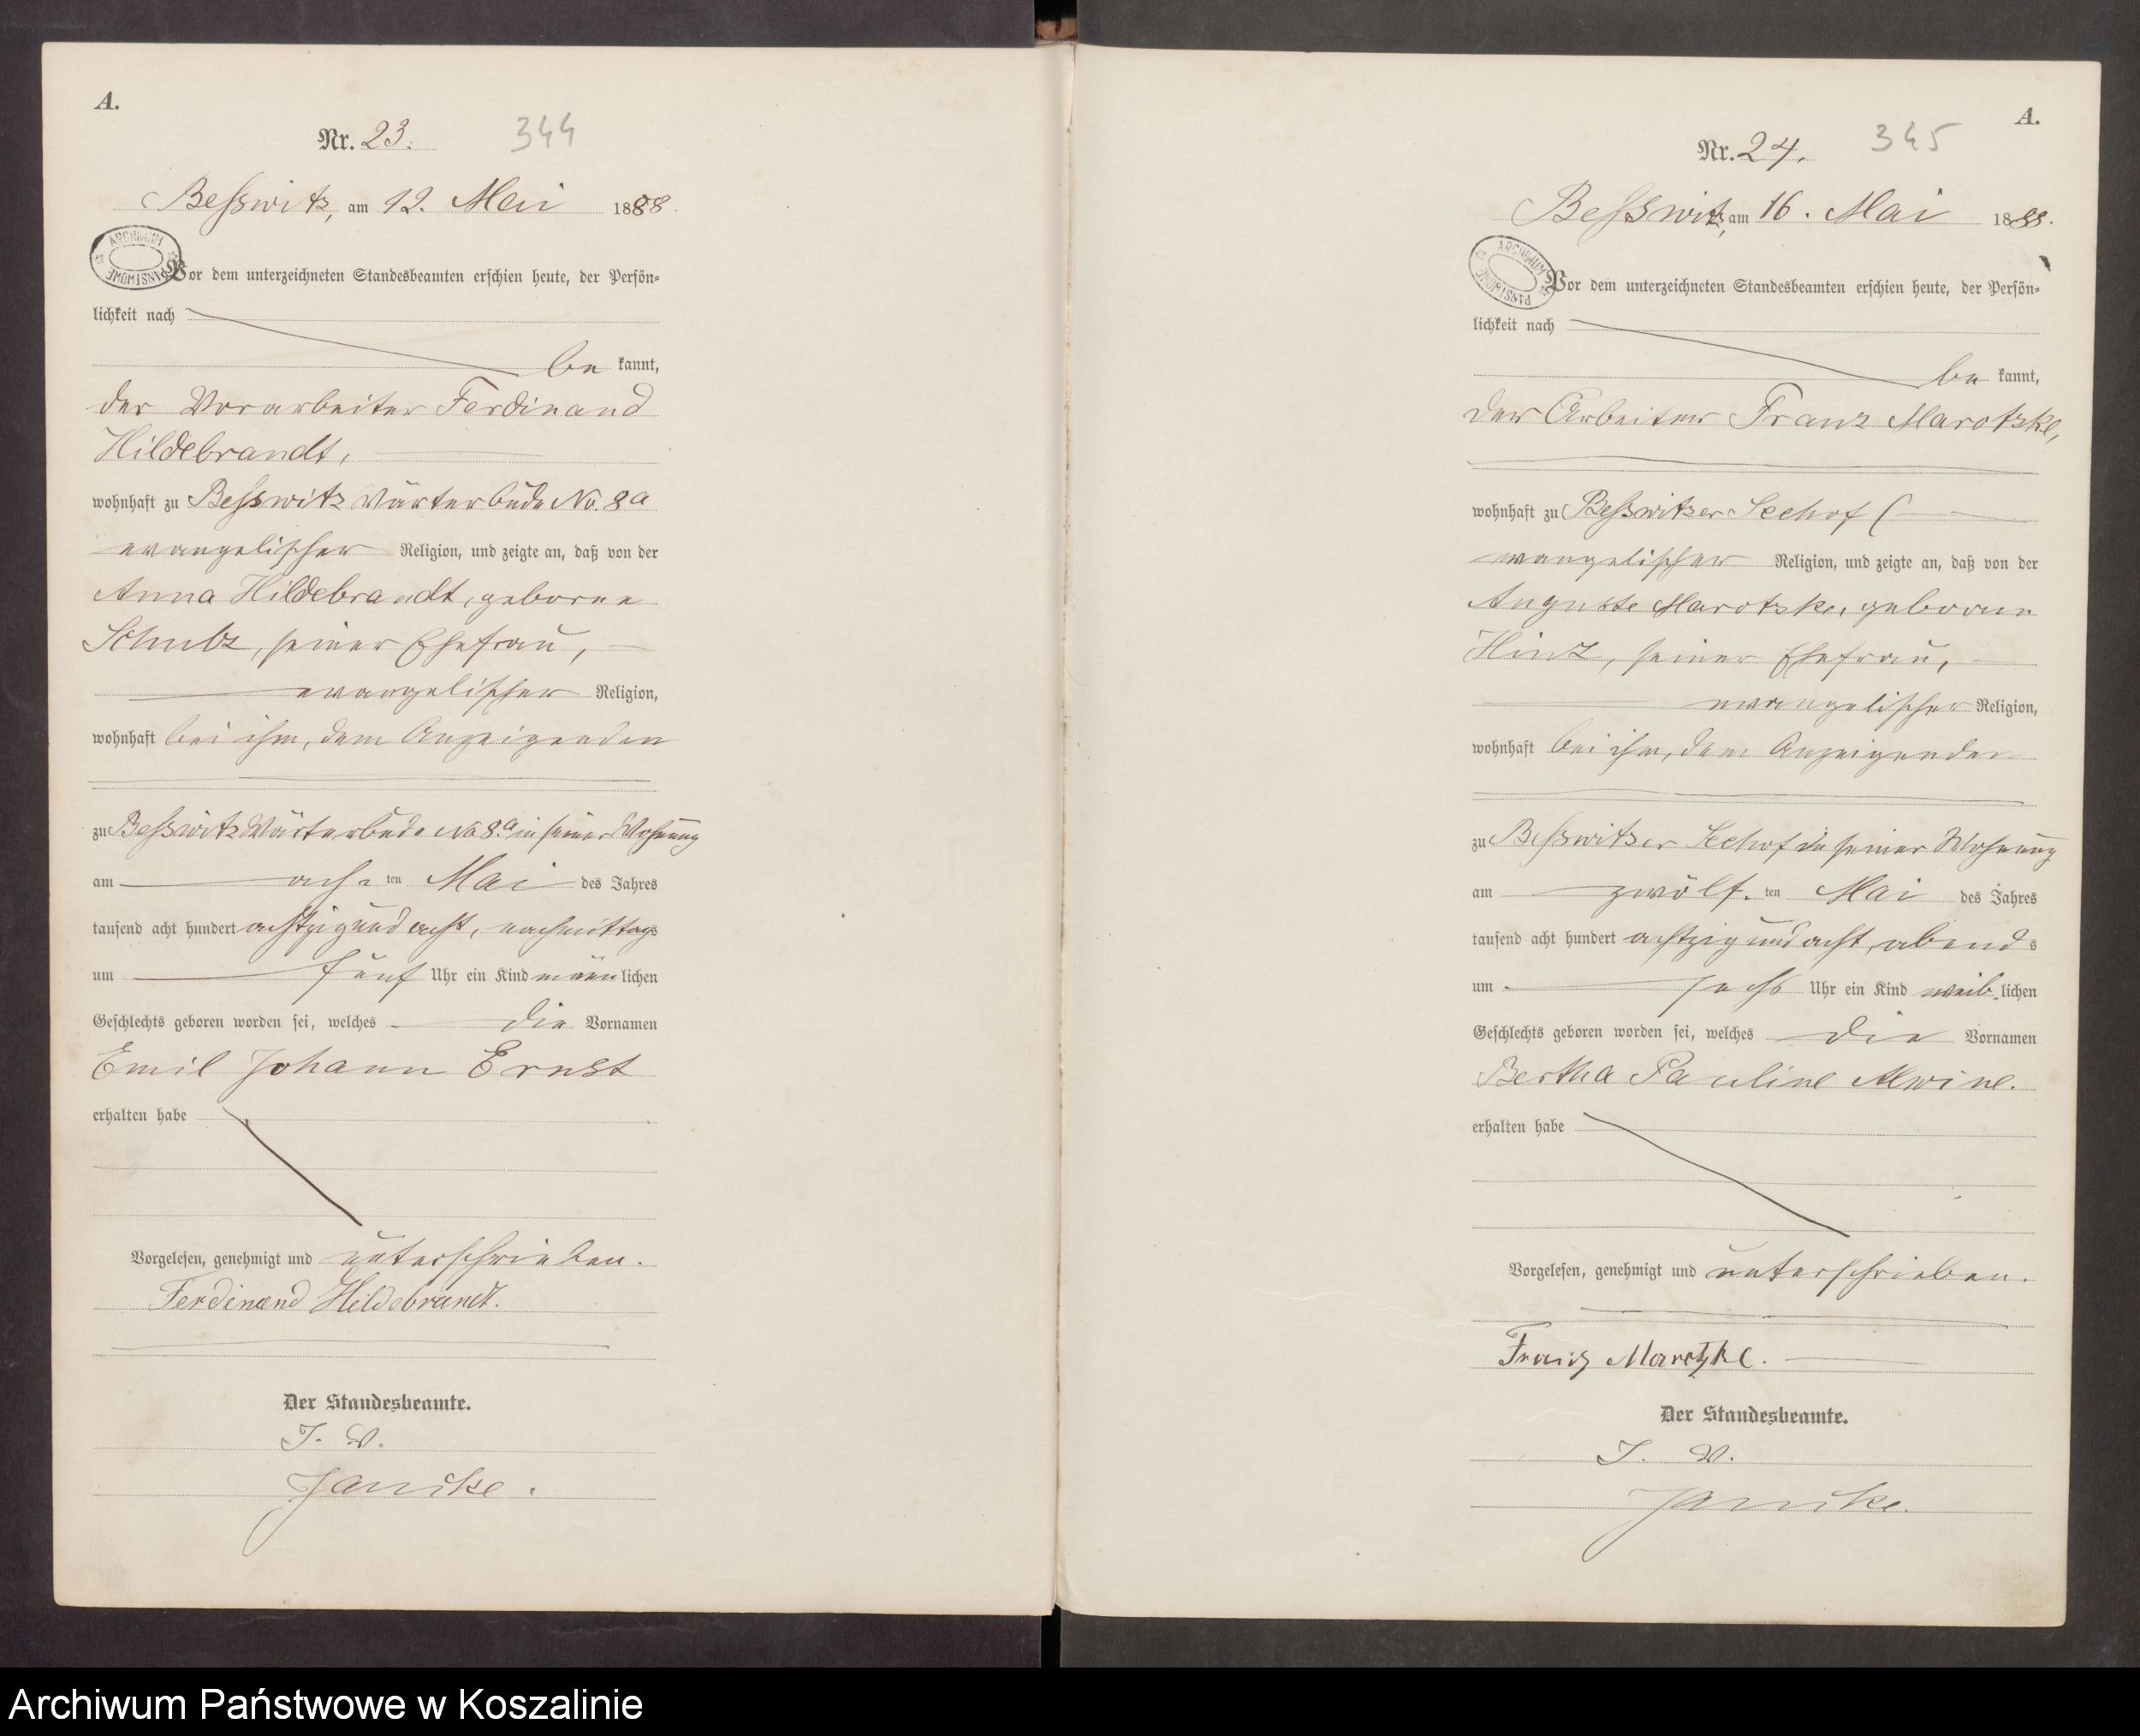 A.
Nr. 23. 344
Beßwitz, am 12. Mai 1888.
ARCHIWUM PAŃSTWOWE
Vor dem unterzeichneten Standesbeamten erschien heute, der Persön=
lichkeit nach
be kannt,
der Vorarbeiter Ferdinand
Hildebrandt,
wohnhaft zu Beßwitz Wärterbude No. 8a
evangelischer Religion, und zeigte an, daß von der
Anna Hildebrandt, geborne
Schulz, seiner Ehefrau,
evangelischer Religion,
wohnhaft bei ihm, dem Anzeigenden
zu Beßwitz Wärterbude No 8.a in seiner Wohnung
am ach-ten Mai des Jahres
tausend acht hundert achtzig und acht, nachmittags
um fünf Uhr ein Kind männlichen
Geschlechts geboren worden sei, welches die Vornamen
Emil Johann Ernst
erhalten habe
Vorgelesen, genehmigt und unterschrieben.
Ferdinand Hildebrandt.
Der Standesbeamte.
J. V.
Jancke.
A.
Nr. 24. 345
Beßwitz, am 16. Mai 1888.
ARCHIWUM PAŃSTWOWE
Vor dem unterzeichneten Standesbeamten erschien heute, der Persön=
lichkeit nach
be kannt,
der Arbeiter Franz Marotzke,
wohnhaft zu Beßwitzer Seehof
evangelischer Religion, und zeigte an, daß von der
Auguste Marotzke, geborne
Hinz, seiner Ehefrau,
evangelischer Religion,
wohnhaft bei ihm, dem Anzeigenden
zu Beßwitzer Seehof in seiner Wohnung
am zwölf-ten Mai des Jahres
tausend acht hundert achtzig und acht, abends
um sechs Uhr ein Kind weiblichen
Geschlechts geboren worden sei, welches die Vornamen
Bertha Pauline Alwine.
erhalten habe
Vorgelesen, genehmigt und unterschrieben.
Franz Marotzke.
Der Standesbeamte.
J. V.
Jancke.
Archiwum Państwowe w Koszalinie